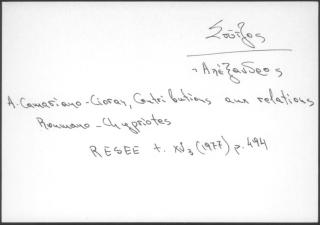 Σούτζος
Αλέξανδρος
A. Camariano-Cioran, Contributions aux relations
Roumano-Chypriotes
RESEE t. XV₃ (1977) p. 494